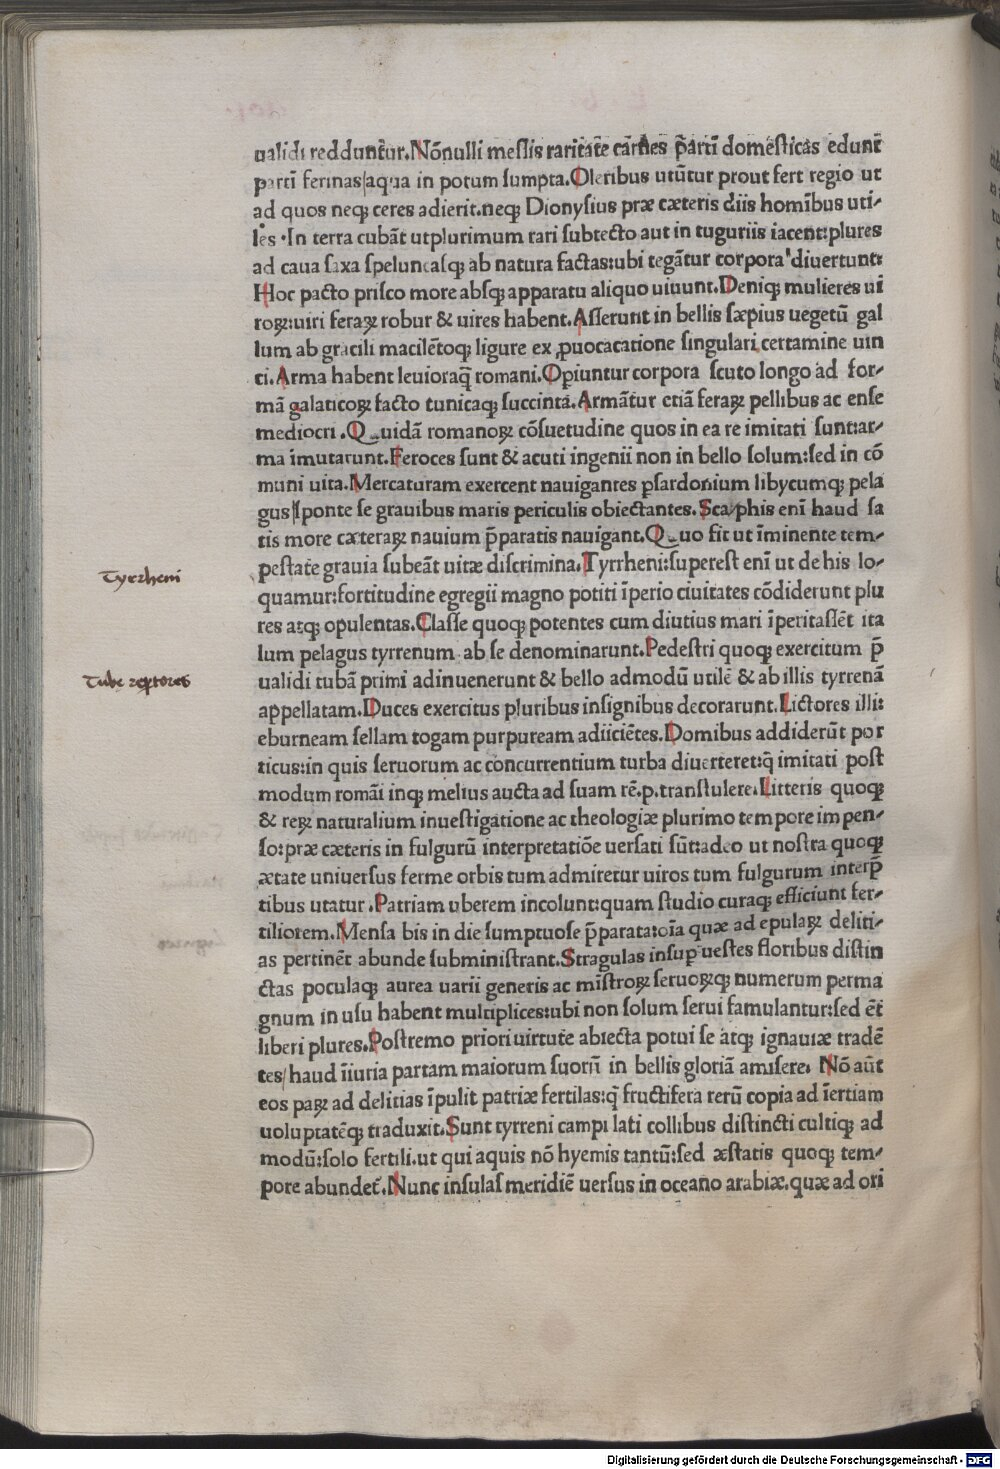 ualidi reddunt̃ur.Nōnulli messis raritate cārnes p̄artī domesticas edunt̃
partī ferinas|aqua in potum sumpta.Oleribus utūtur prout fert regio ut
ad quos neqꝫ ceres adierit.neqꝫ Dionysius præ cæteris diis homībus uti⸗
les .In terra cubāt utplurimum rari subtecto aut in tuguriis iacent:plures
ad caua saxa speluncasqꝫ ab natura factas:ubi tegātur corpora diuertunt:
Hoc pacto prisco more absqꝫ apparatu aliquo uiuunt.Deniqꝫ mulieres ui
roꝝ:uiri feraꝝ robur & uires habent.Asserunt in bellis sæpius uegetū gal
lum ab gracili macilētoqꝫ ligure ex ꝓuocacatione singulari certamine uin
ci.Arma habent leuioraq̄ romani.Opiuntur corpora scuto longo ad for⸗
mā galaticoꝝ facto tunicaqꝫ succinta.Armātur etiā feraꝝ pellibus ac ense
mediocri .Quidā romanoꝝ cōsuetudine quos in ea re imitati sunt:ar⸗
ma īmutarunt.Feroces sunt & acuti ingenii non in bello solum:sed in cō
muni uita.Mercaturam exercent nauigantes ꝑsardonium libycumqꝫ pela
gus|sponte se grauibus maris periculis obiectantes.Scaphis enī haud sa
tis more cæteraꝝ nauium p̄paratis nauigant.Quo fit ut īminente tem⸗
pestate grauia subeāt uitæ discrimina.Tyrrheni:superest enī ut de his lo⸗
quamur:fortitudine egregii magno potiti īperio ciuitates cōdiderunt plu
res atqꝫ opulentas.Classe quoqꝫ potentes cum diutius mari īperitassēt ita
lum pelagus tyrrenum ab se denominarunt.Pedestri quoqꝫ exercitum p̄
ualidi tubā primi adinuenerunt & bello admodū utilē & ab illis tyrrenā
appellatam.Duces exercitus pluribus insignibus decorarunt.Lictores illi:
eburneam sellam togam purpuream adiiciētes.Domibus addiderūt por
ticus:in quis seruorum ac concurrentium turba diuerteret:q̄ imitati post
modum romāi inqꝫ melius aucta ad suam rē.p.transtulere.Litteris quoqꝫ
& reꝝ naturalium inuestigatione ac theologiæ plurimo tempore impen⸗
so:præ cæteris in fulgurū interpretatiōe uersati sūt:adeo ut nostra quoqꝫ
ætate uniuersus ferme orbis tum admiretur uiros tum fulgurum interp̄
tibus utatur .Patriam uberem incolunt:quam studio curaqꝫ efficiunt fer⸗
tiliorem.Mensa bis in die sumptuose p̄parata:oīa quæ ad epulaꝝ deliti⸗
as pertinēt abunde subministrant.Stragulas insuꝑ uestes floribus distin
ctas poculaqꝫ aurea uarii generis ac mīstroꝝ seruoꝝqꝫ numerum perma
gnum in usu habent multiplices:ubi non solum serui famulantur:sed ēt
liberi plures.Postremo priori uirtute abiecta potui se atqꝫ ignauiæ tradē
tes/haud īiuria partam maiorum suorū in bellis gloriā amisere. Nō aūt
eos paꝝ ad delitias īpulit patriæ fertilas:q̄ fructifera rerū copia ad īertiam
uoluptatēqꝫ traduxit.Sunt tyrreni campi lati collibus distincti cultiqꝫ ad
modū:solo fertili.ut qui aquis nō hyemis tantū:sed æstatis quoqꝫ tem⸗
pore abundet̃.Nunc insulas meridiē uersus in oceano arabiæ.quæ ad ori
Tyrrheni
Tube rep̄tores
Digitalisierung gefördert durch die Deutsche Forschungsgemeinschaft - DFG